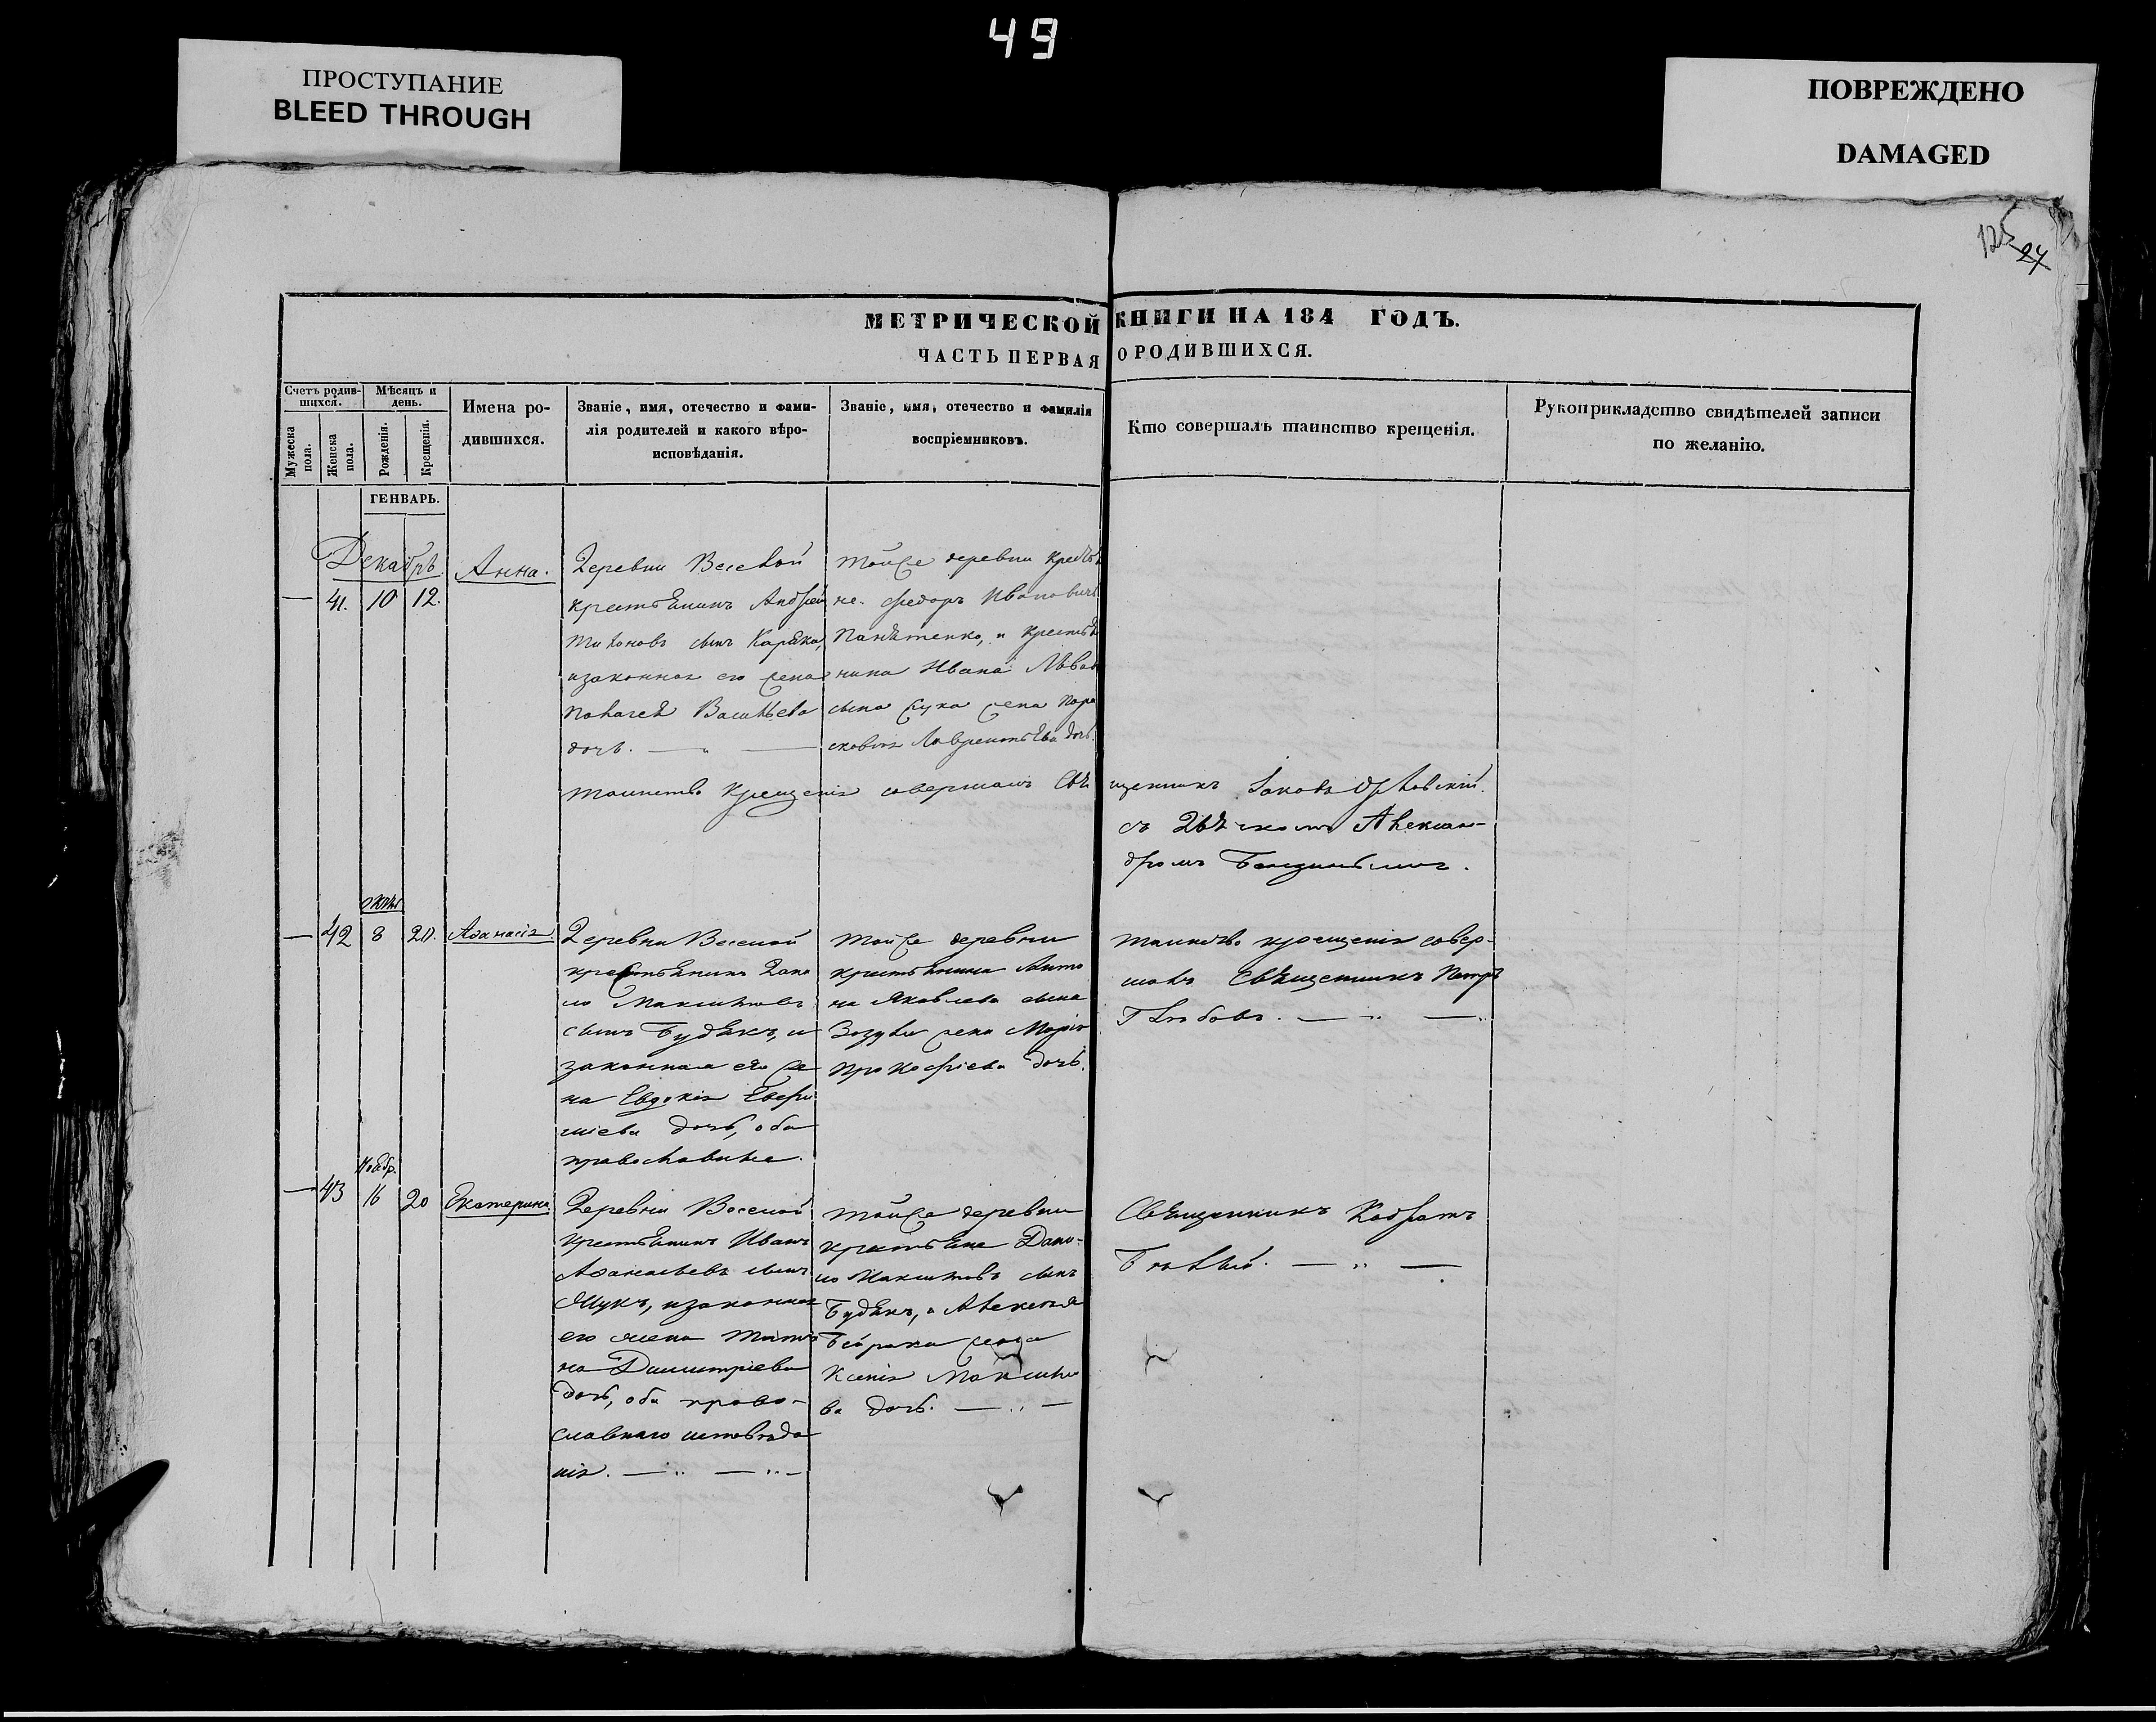 49
ПРОСТУПАНИЕ
BLEED THROUGH
ПОВРЕЖДЕНО
DAMAGED
125
27
МЕТРИЧЕСКОЙ КНИГИ НА 184 ГОДЪ.
ЧАСТЬ ПЕРВАЯ О РОДИВШИХСЯ.
Счетъ родив-
шихся.
Мужеска
пола.
Женска
пола.
Мѣсяцъ и
день.
Рожденія.
Крещенія.
Имена ро-
дившихся.
Званіе, имя, отечество и фами-
лія родителей и какого вѣро-
исповѣданія.
Званіе, имя, отечество и фамилія
воспріемниковъ.
Кто совершалъ таинство крещенія.
Рукоприкладство свидѣтелей записи
по желанію.
ГЕНВАРЬ.
Декабрь.
— 41. 10 12.
Анна.
Деревни Веселой
крестьянинъ Андрей
Тихоновъ сынъ
изаконная его жена
Васильева
дочь. — „ —
Тойже деревни
не. Федоръ Ивановичъ
и крестья
нина Ивана
сына жена Пара
сковия Лаврентьева дочь.
Таинство Крещенія совершалъ Свя
щенникъ Іаковъ
съ Дьячкомъ Алексан-
дромъ
— 42 8
Афанасія
Деревни Веселой
крестьянинъ Дани
ло Максимовъ
сынъ Будякъ, и
законная его же
на Евдокія
дочь, оба
православные.
Тойже деревни
крестьянина Анто
на Яковлева сына
жена Марія
Прокофіева дочь.
Таинство крещенія совер-
шалъ Священникъ Петръ
— „ —
Ноябр.
— 43 16 20
Екатерина.
Деревни Веселой
крестьянинъ Иванъ
Афанасьевъ сынъ
изаконная
его жена Татья
на Димитріева
дочь, оба право-
славнаго исповѣда
нія. — „ — „ —
Тойже деревни
крестьяне Дани-
ло Максимовъ сынъ
Будякъ, и Алексея
жена
Ксенія Максимо
ва дочь. — „ —
Священникъ Кодратъ
— „ —